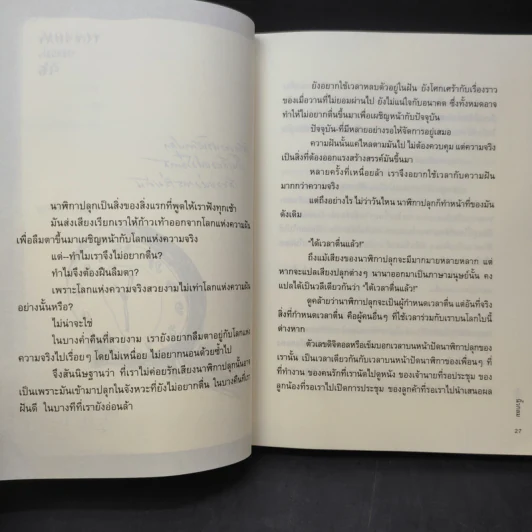 นาฬิกาปลุกเป็นสิ่งของสิ่งแรกที่พูดให้เราฟังทุกเช้า
มันส่งเสียงเรียกเราให้ก้าวเท้าออกจากโลกแห่งความฝัน
เพื่อลืมตาขึ้นมาเผชิญหน้ากับโลกแห่งความจริง
แต่--ทำไมเราจึงไม่อยากตื่น?
ทำไมจึงต้องฝืนลืมตา?
เพราะโลกแห่งความจริงสวยงามไม่เท่าโลกแห่งความฝัน
อย่างนั้นหรือ?
ไม่น่าจะใช่
ในบางค่ำคืนที่สวยงาม เรายังอยากลืมตาอยู่กับโลกแห่ง
ความจริงไปเรื่อยๆ โดยไม่เหนื่อย ไม่อยากนอนด้วยซ้ำไป
จึงสันนิษฐานว่า ที่เราไม่ค่อยรักเสียงนาฬิกาปลุกนั้นอาจ
เป็นเพราะมันเข้ามาปลุกในจังหวะที่ยังไม่อยากตื่น ในบางคืนที่เรา
ฝันดี ในบางทีที่เรายังอ่อนล้า
ยังอยากใช้เวลาหลบตัวอยู่ในฝัน ยังโศกเศร้ากับเรื่องราว
ของเมื่อวานที่ไม่ยอมผ่านไป ยังไม่แน่ใจกับอนาคต ซึ่งทั้งหมดอาจ
ทำให้ไม่อยากตื่นขึ้นมาเพื่อเผชิญหน้ากับปัจจุบัน
ปัจจุบัน-ที่มีหลายอย่างรอให้จัดการอยู่เสมอ
ความฝันนั้นแค่ไหลตามมันไป ไม่ต้องควบคุม แต่ความจริง
เป็นสิ่งที่ต้องออกแรงสร้างสรรค์มันขึ้นมา
หลายครั้งที่เหนื่อยล้า เราจึงอยากใช้เวลากับความฝัน
มากกว่าความจริง
แต่ถึงอย่างไร ไม่ว่าวันไหน นาฬิกาปลุกก็ทำหน้าที่ของมัน
ดังเดิม
"ได้เวลาตื่นแล้ว!"
ถึงแม้เสียงของนาฬิกาปลุกจะมีมากมายหลายหลาก แต่
หากจะแปลเสียงปลุกต่างๆ นานาออกมาเป็นภาษามนุษย์นั้น คง
แปลได้เป็นวลีเดียวกันว่า "ได้เวลาตื่นแล้ว!"
ดูคล้ายว่านาฬิกาปลุกจะเป็นผู้กำหนดเวลาตื่น แต่อันที่จริง
สิ่งที่กำหนดเวลาตื่น คือผู้คนอื่นๆ ที่ใช้เวลาร่วมกับเราบนโลกใบนี้
ต่างหาก
ตัวเลขดิจิตอลหรือเข็มบอกเวลาบนหน้าปัดนาฬิกาปลุกของ
เรานั้น เป็นเวลาเดียวกันกับเวลาบนหน้าปัดนาฬิกาของเพื่อนๆ ที่
ที่ทำงาน ของคนรักที่เรานัดไปดูหนัง ของเจ้านายที่รอประชุม ของ
ลูกน้องที่รอเราไปเปิดการประชุม ของลูกค้าที่รอเราไปนำเสนอผล
27